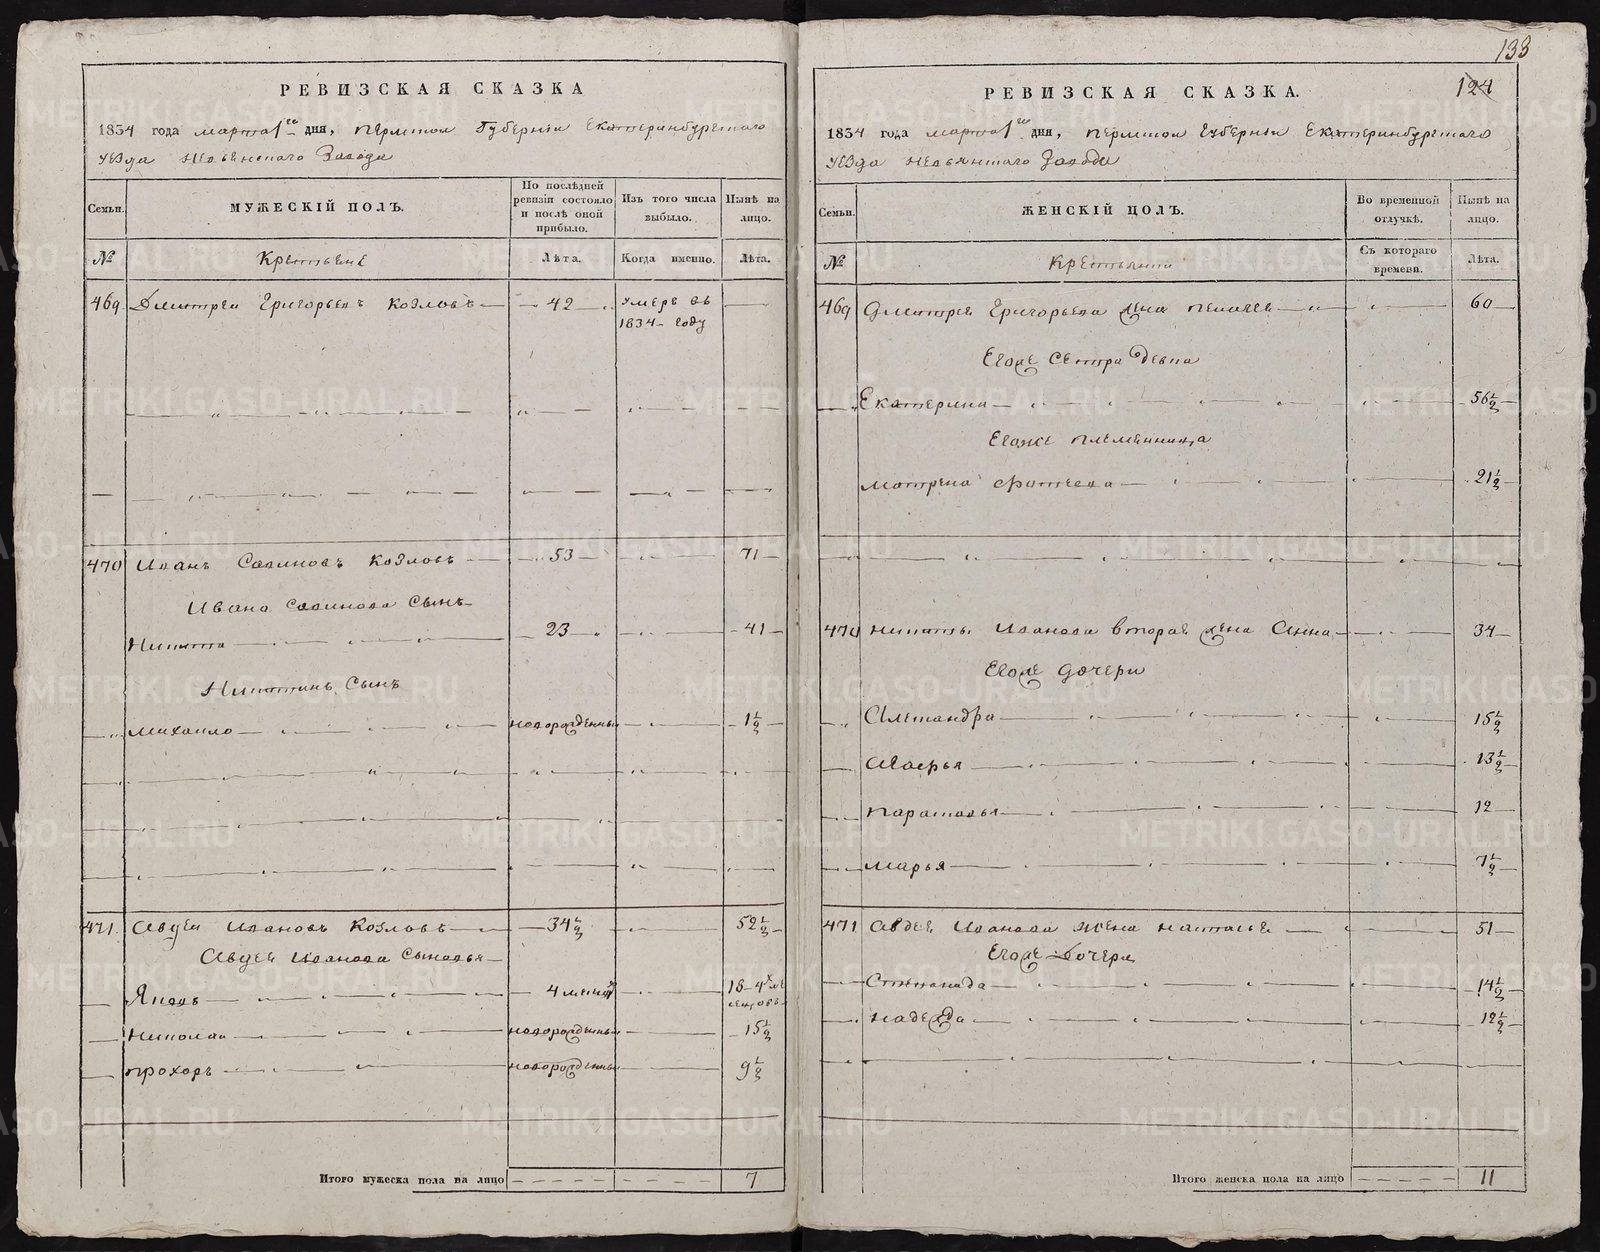 РЕВИЗСКАЯ СКАЗКА
1834 года марта 1го дня, пермской Губернiи Екатеринбургского
уезда Невьянского Завода
Семьи. МУЖЕСКIЙ ПОЛЪ. По послѣдней ревизiи состояло и послѣ оной прибыло. Изъ того числа выбыло. Нынѣ на лицо.
№ Крестьяне Лѣта. Когда именно. Лѣта.
469 Дмитреи Григорьевъ Козловъ 42 умеръ въ
1834 году
470 Иванъ Савиновъ Козловъ 53 71
Ивана Савинова Сынъ
Никита 23 41
Никитинъ Сынъ
михаило новорожденный 1 1/2
471 Авдеи Ивановъ Козловъ 34 1/2 52 1/2
Авдея Иванова Сыновья
Яковъ 4 18-4х
Николаи новорожденный 15 1/2
прохоръ новорожденный 9 1/2
Итого мужеска пола на лицо 7
133
124
РЕВИЗСКАЯ СКАЗКА.
1834 года марта 1го дня, пермской губернiи Екатеринбургского
уезда невьянского Завода
Семьи. ЖЕНСКIЙ ПОЛЪ. Во временной отлучкѣ. Нынѣ на лицо.
№ Крестьянки Съ котораго времени. Лѣта.
469 Дмитрея Григорьева жена пелагея 60
Егоже Сестра девка
Екатерина 56 1/2
Егоже племянница
матрена 21 1/2
470 никиты Иванова вторая жена Анна 34
Егоже дочери
Александра 15 1/2
13 1/2
парасковья 12
марья 7 1/2
471 Авдея Иванова жена настасья 51
Егоже дочери
Степанида 14 1/2
надежда 12 1/2
Итого женска пола на лицо 11
METRIKI.GASO-URAL.RU